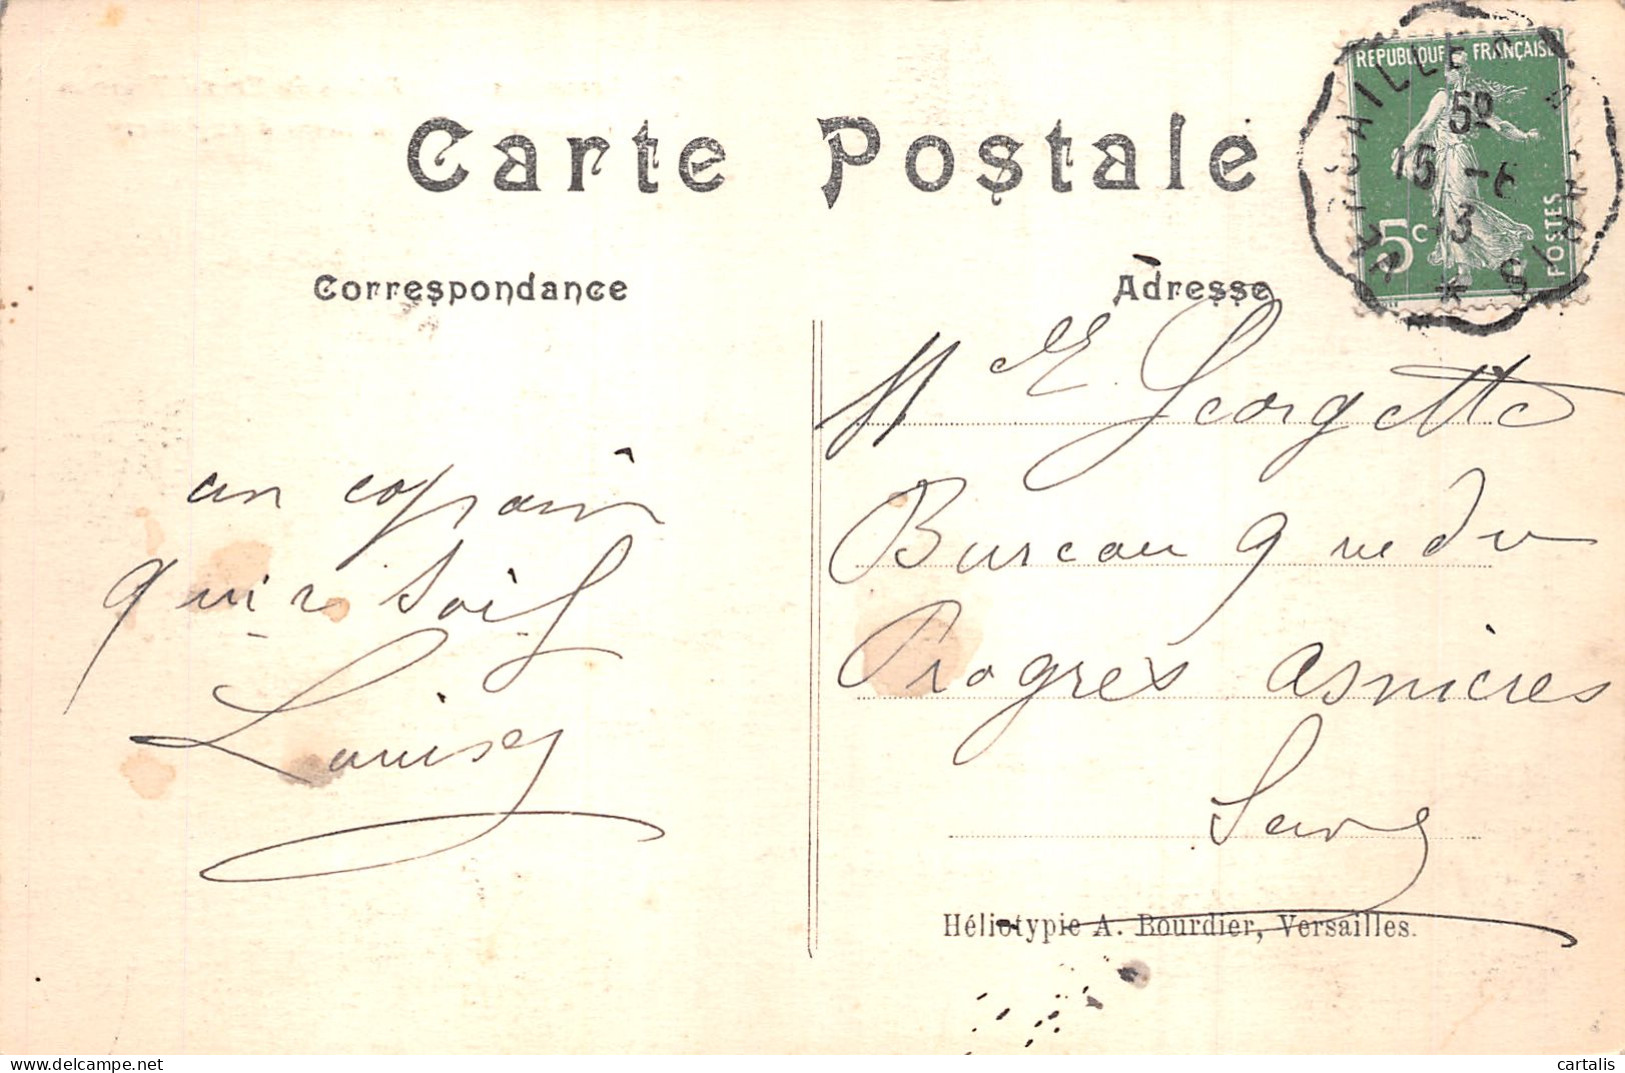 Carte Postale
Correspondance
un copain
qui a soif
Louisy
Adresse
REPUBLIQUE FRANÇAISE
5c
POSTES
VERSAILLES A PARIS
5e
15 -6
13
M E. Georgette
Bureau 9 rue du
Progrès Asnières
Seine
Héliotypie A. Bourdier, Versailles.
cartalis